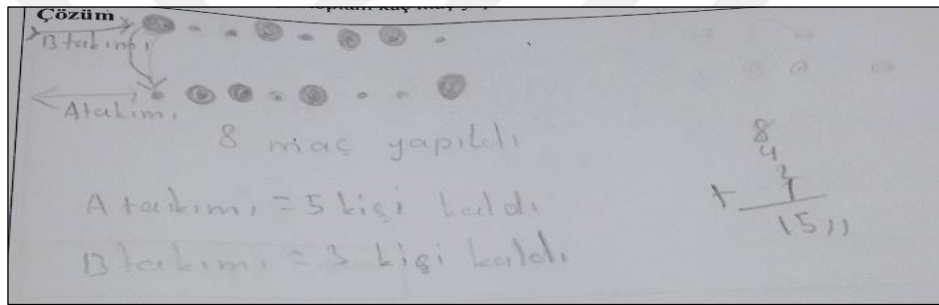 Çözüm
B takımı
A takımı
8 maç yapıldı
A takımı = 5 kişi kaldı
B takımı = 3 kişi kaldı
8
4
2
+ 1
15 ,,